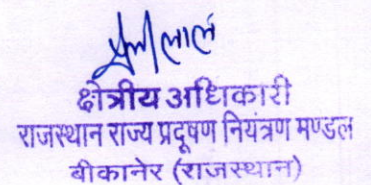 लाल
क्षेत्रीय अधिकारी
राजस्थान राज्य प्रदूषण नियंत्रण मण्डल
बीकानेर (राजस्थान)